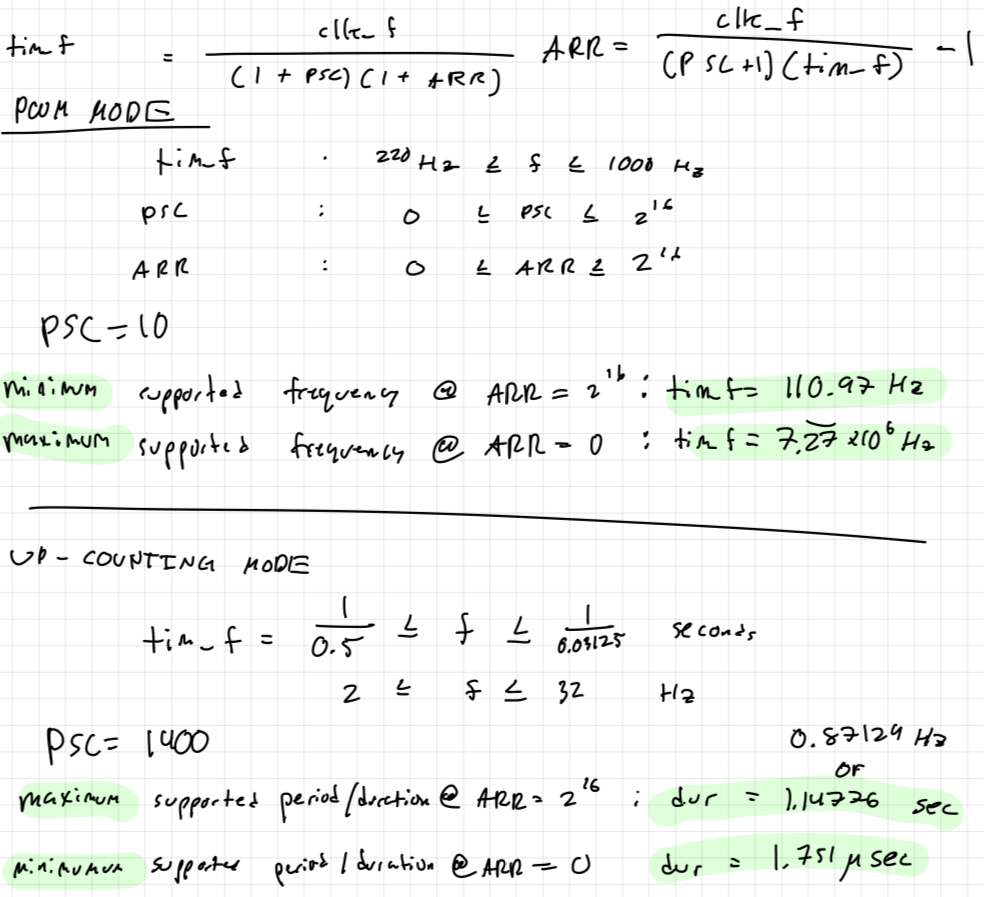 tim_f = clk_f / (1 + PSC)(1 + ARR) ARR = clk_f / (PSC+1)(tim_f) - 1
PWM MODE
tim_f : 220 Hz ≤ f ≤ 1000 Hz
PSC : 0 ≤ PSC ≤ 2^16
ARR : 0 ≤ ARR ≤ 2^16
PSC = 10
minimum supported frequency @ ARR = 2^16 : tim f = 110.97 Hz
maximum supported frequency @ ARR = 0 : tim f = 7.27 x10^6 Hz
UP - COUNTING MODE
tim_f = 1/0.5 ≤ f ≤ 1/0.03125 seconds
2 ≤ f ≤ 32 Hz
PSC = 1400
0.87129 Hz
or
maximum supported period/duration @ ARR = 2^16 ; dur = 1.14776 sec
minimumum supported period / duration @ ARR = 0 dur = 1.751 μsec